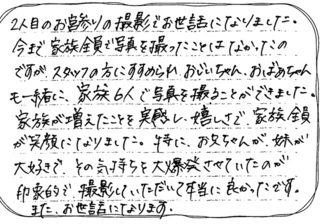 2人目のお宮参りの撮影でお世話になりました。
今まで家族全員で写真を撮ったことはなかったの
ですが、スタッフの方にすすめられ、おじいちゃん、おばあちゃん
も一緒に、家族6人で写真を撮ることができました。
家族が増えたことを実感し、嬉しさで、家族全員
が笑顔になりました。特に、お兄ちゃんが、妹が
大好きで、その気持ちを大爆発させていたのが
印象的で、撮影していただいて本当に良かったです。
また、お世話になります。